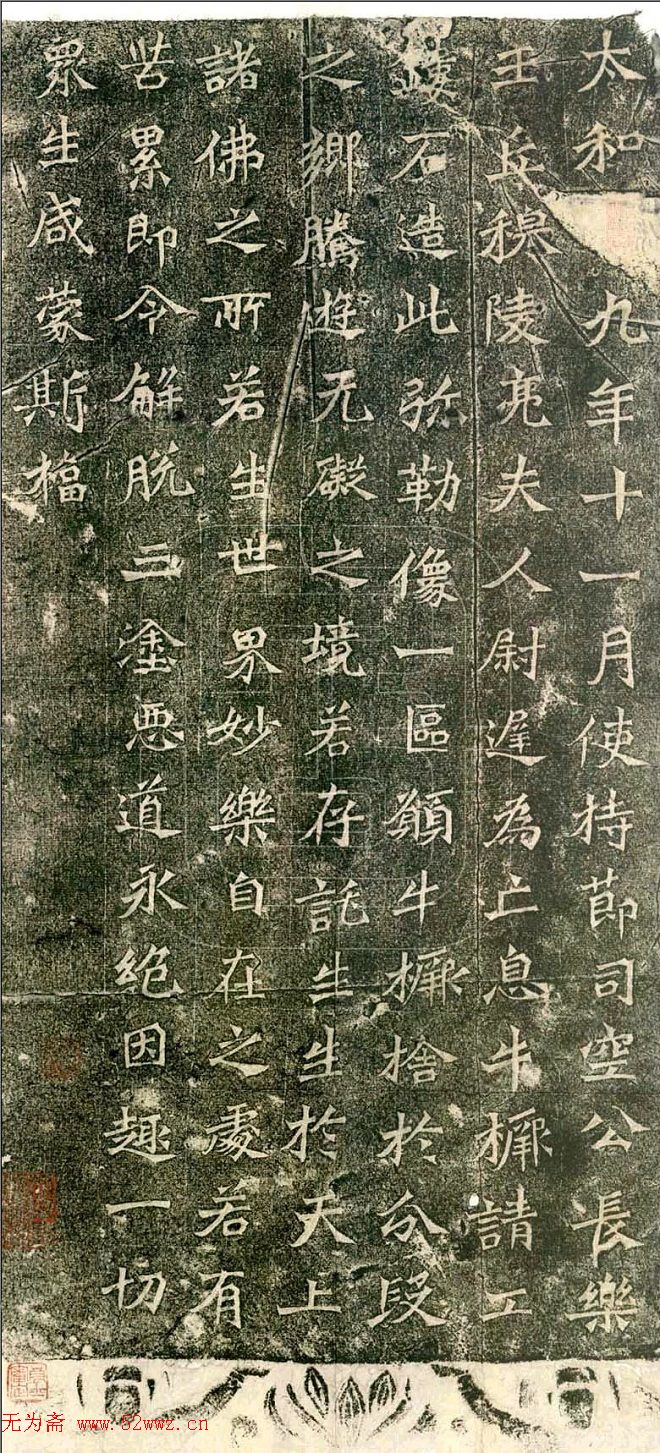 太和九年十一月使持節司空公長樂
王丘穆陵亮夫人尉遲為亡息牛橛請工
鏤石造此弥勒像一區願牛橛捨於分段
之鄉騰遊无礙之境若存託生生於天上
諸佛之所若生世界妙樂自在之處若有
苦累即令解脫三塗惡道永絕因趣一切
眾生咸蒙斯福
无为斋 www.52wwz.cn